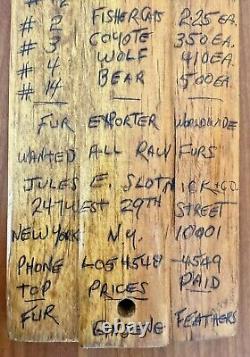 # 2 FISHERCATS 2.25 EA.
# 3 COYOTE 3.50 EA.
# 4 WOLF 4.10 EA.
# 14 BEAR 5.00 EA.
FUR EXPORTER WORLDWIDE
WANTED ALL RAW FURS
JULES E. SLOTNICK & CO
247 WEST 29TH STREET
NEW YORK N.Y. 10001
PHONE LO54548 - 4549
TOP PRICES PAID
FUR FEATHERS